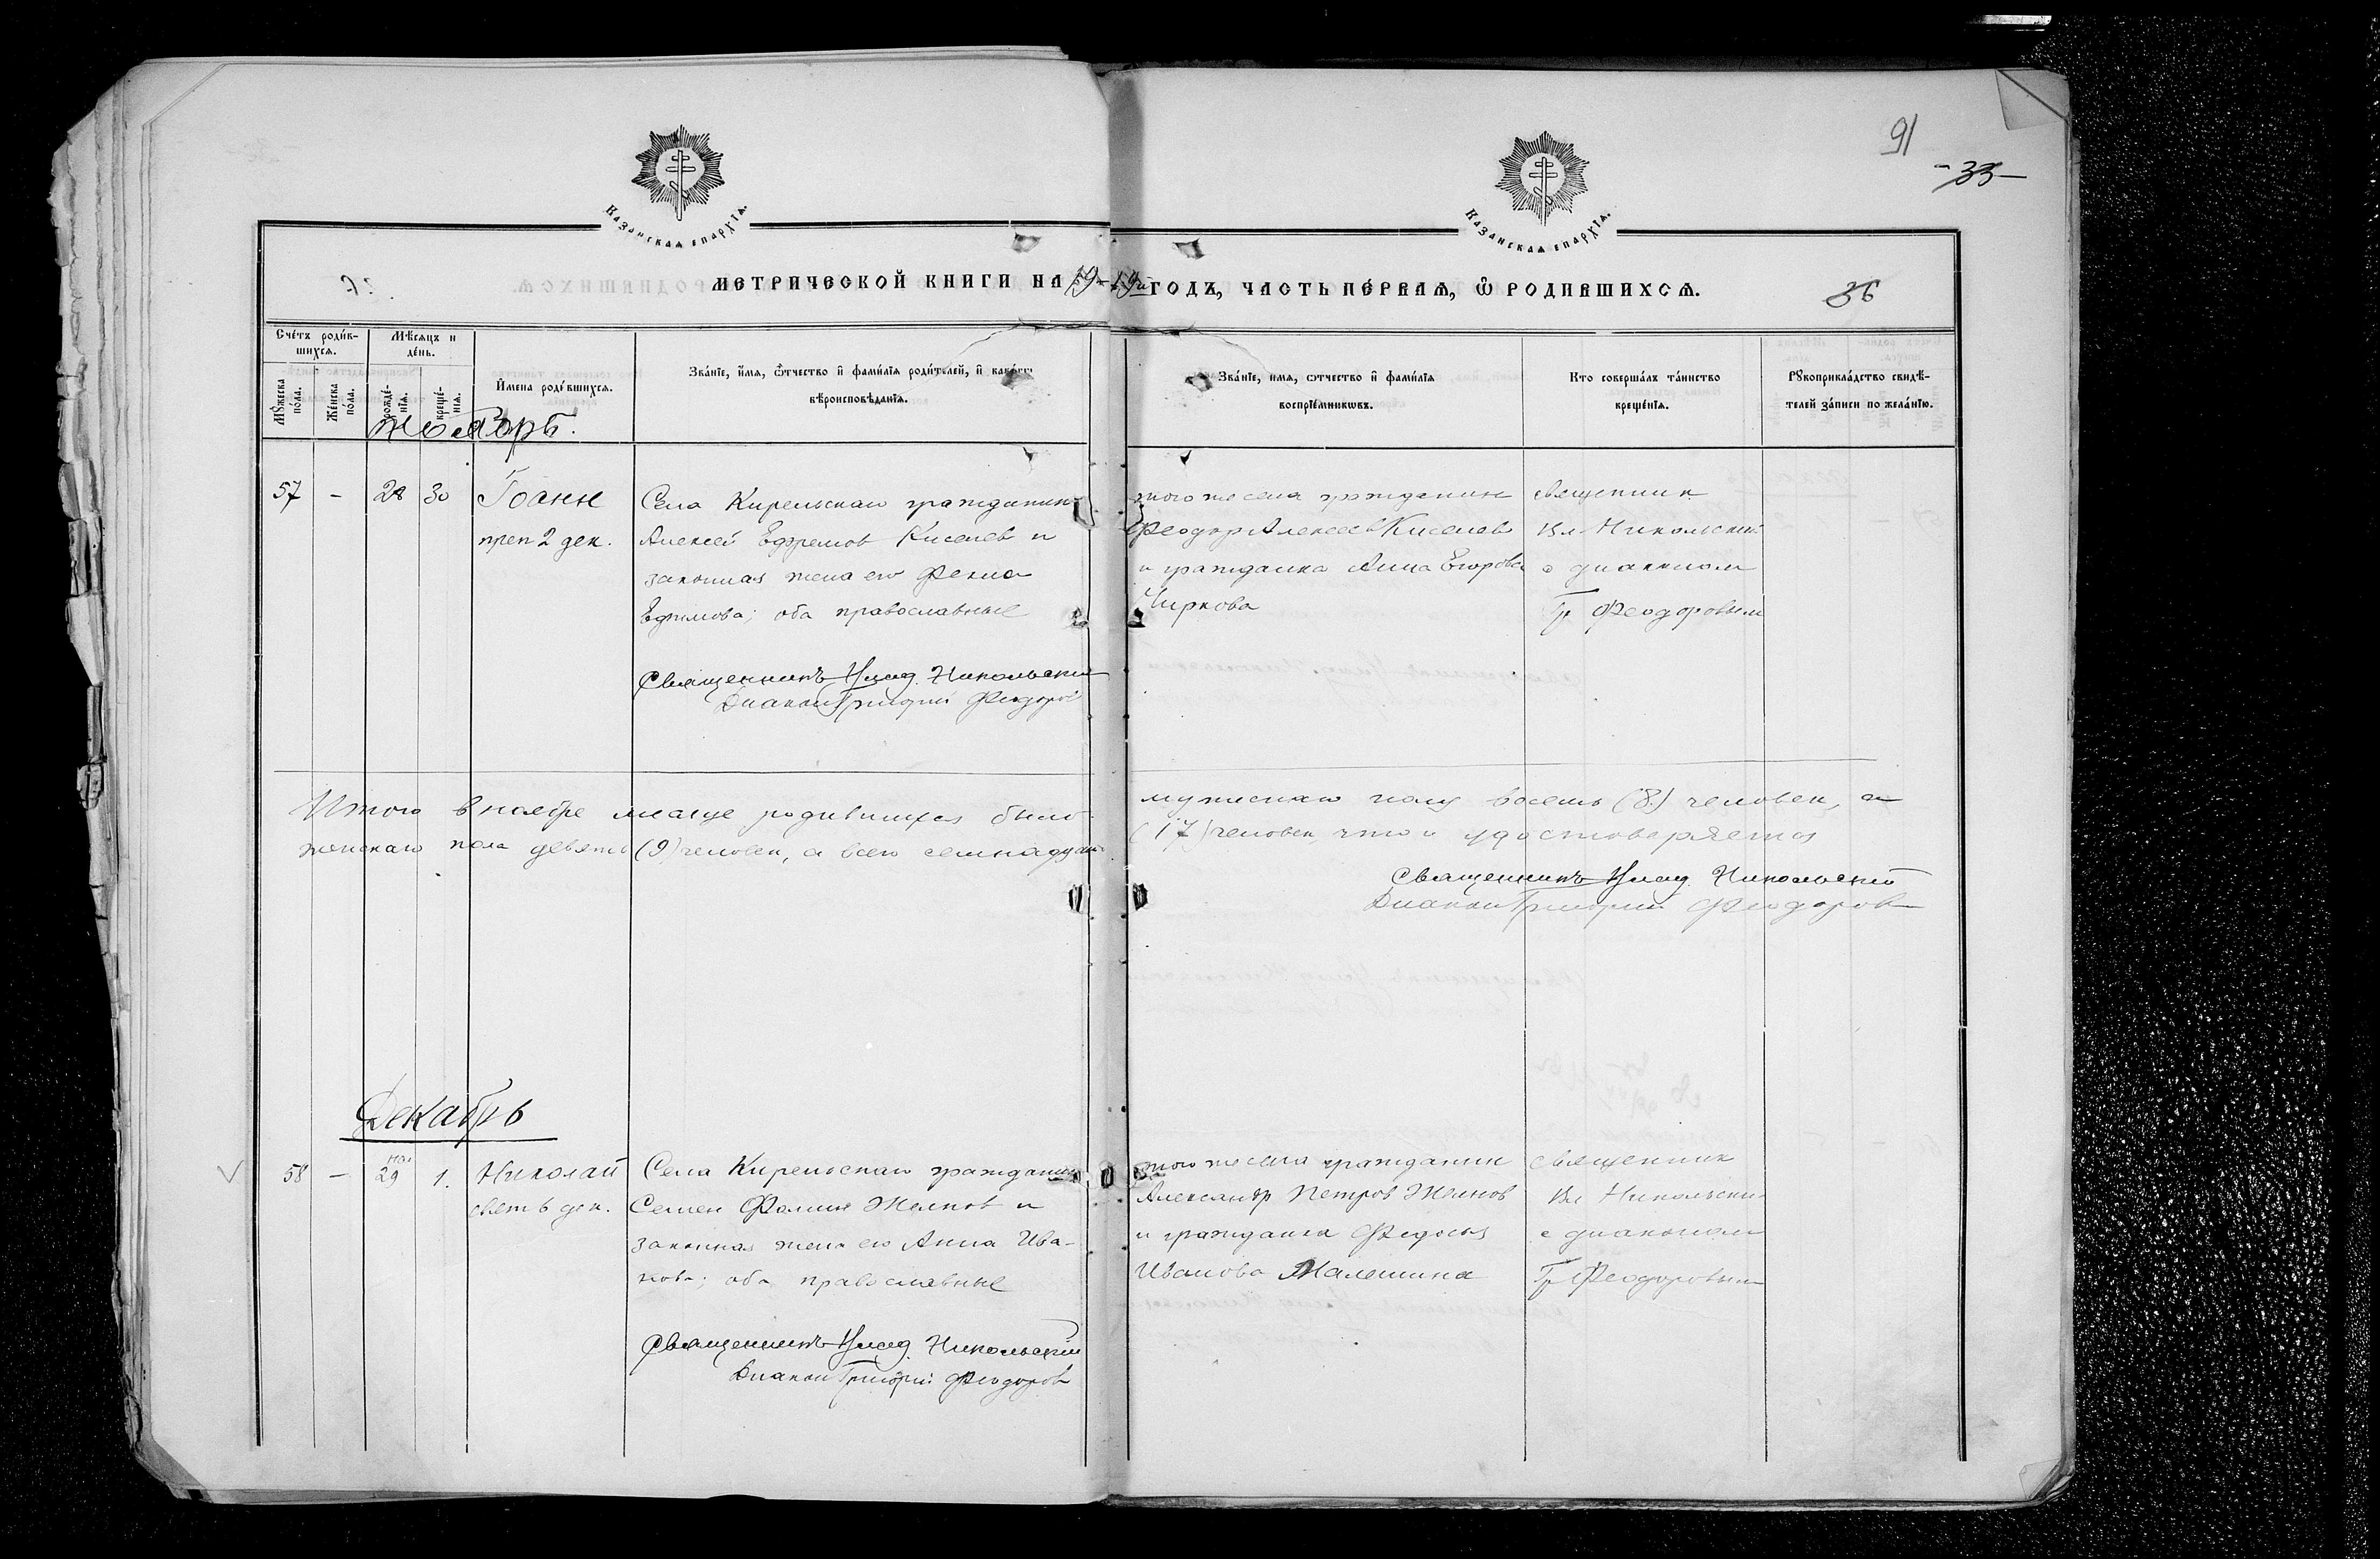 91
-33-
Казанская епархія.
Казанская епархія.
МЕТРИЧЕСКОЙ КНИГИ НА 1919й ГОДЪ, ЧАСТЬ ПЕ́РВАЯ, Ѽ РОДИВШИХСЯ.
36
Сче́тъ роди́в-
шихся.
Мѣ́сяцъ и
де́нь.
Мꙋ́жеска
по́ла.
Же́нска
по́ла.
рожде́-
нїя.
креще́-
нїя.
И҆мена роди́вшихся.
Зва́нїе, и҆́мя, ѻ҆́тчество и҆ фами́лїя роди́телей, и҆ како́гѡ
вѣроисповѣ́данїя.
Зва́нїе, имя, ѻтчество и҆ фами́лїя
воспрїе́мникѡвъ.
Кто соверша́лъ та́инство
креще́нїя.
Рꙋкоприкла́дство свидѣ́-
телей за́писи по жела́нїю.
Ноябрь.
57 - 28 30 Іоанн
преп 2 дек.
Села Кирельскаго гражданин
Алексей Ефремов Киселев и
законная жена его Фекла
Ефимова; оба православные
Священникъ Влад. Никольский
Диакон Григорий Феодоров
того же села гражданин
Феодор Алексеев Киселев
и гражданка Анна Егорова
Чиркова
священник
Вл. Никольский
с диаконом
Гр Феодоровым
Итого в ноябре месяце родившихся было мужскаго полу восемь (8) человек, а
женскаго пола девять (9) человек, а всего семнадцать (17) человек, что и удостоверяется
Священникъ Влад. Никольский
Диакон Григорий Феодоров
Декабрь
58 - ноя 29 1. Николай
свят 6 дек.
Села Кирельскаго гражданин
Семен Фомин Желнов и
законная жена его Анна Ива-
нова; оба православные
Священникъ Влад. Никольский
Диакон Григорий Феодоров
того же села гражданин
Александр Петров Желнов
и гражданка Федосья
Иванова Малешина
священник
Вл Никольский
с диаконом
Гр Феодоровым